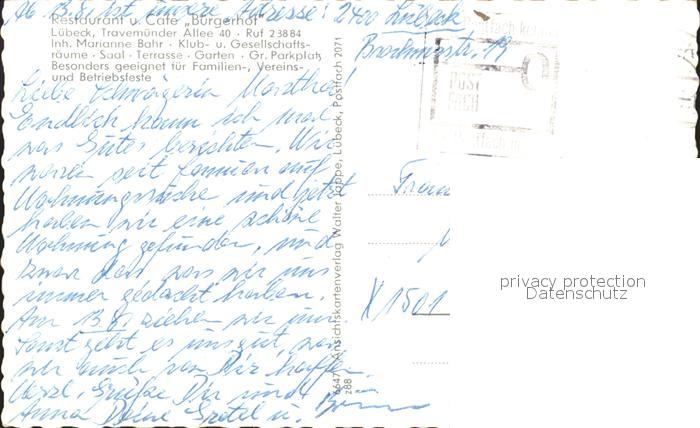 Ab 13.8. ist unsere Adresse: 2400 Lübeck
Brockmannstr. 19
Restaurant u. Café „Burgerhof"
Lübeck, Travemünder Allee 40 · Ruf 23884
Inh. Marianne Bahr · Klub- u. Gesellschafts-
räume · Saal · Terrasse · Garten · Gr. Parkplatz
Besonders geeignet für Familien-, Vereins-
und Betriebsfeste
Liebe Schwägerin Marthel
Endlich kann ich mal
was Gutes berichten. Wir
waren seit Januar auf
Wohnungssuche und jetzt
haben wir eine schöne
Wohnung gefunden, und
zwar das, was wir uns
immer gedacht haben.
Am 13.8. ziehen wir um.
Sonst geht es uns gut, was
wir auch von Dir hoffen.
Herzl. Grüße Dir und
Anna Deine Gretel u.
6647 Ansichtskartenverlag Walter Jappe, Lübeck, Postfach 2071
z88
POST
FACH
Frau
X 1501
privacy protection
Datenschutz